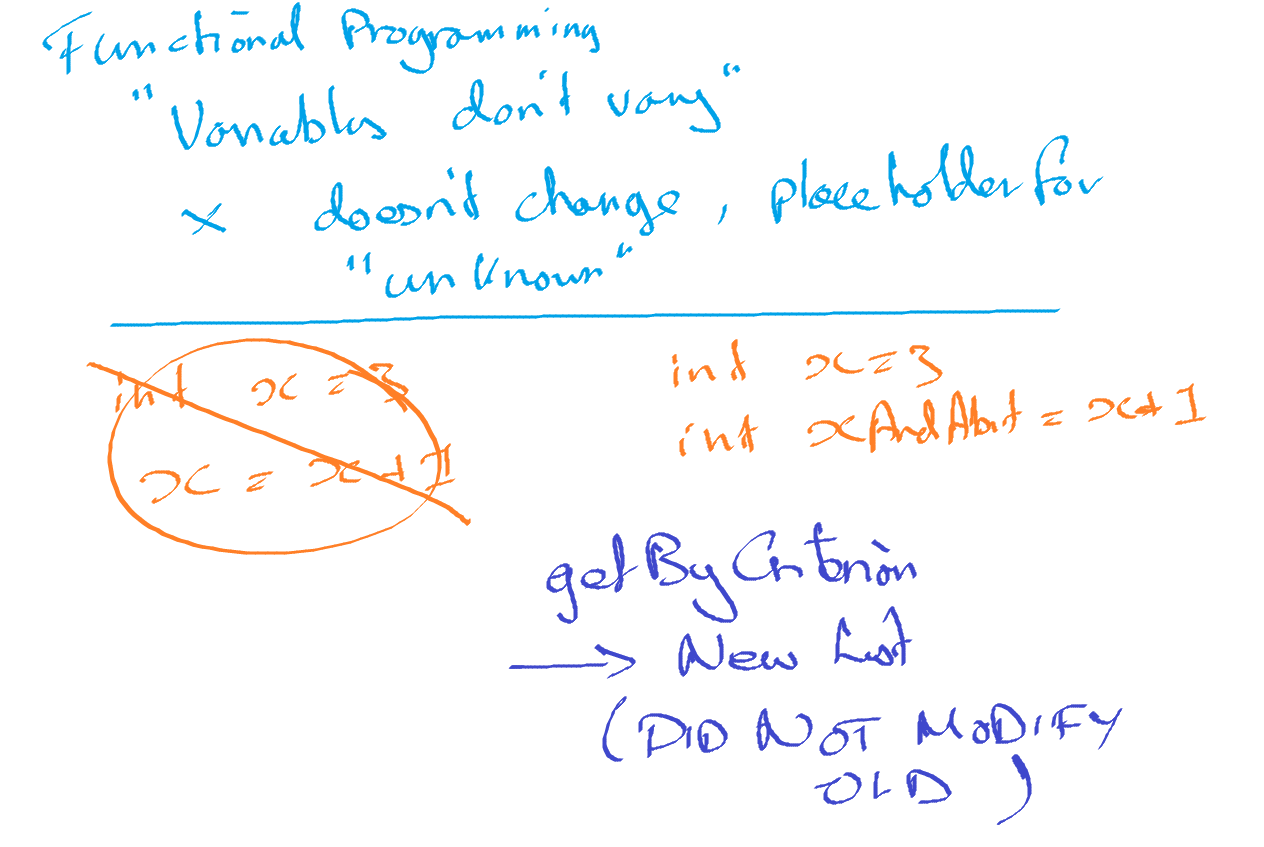 Functional Programming
"Variables don't vary"
x doesn't change, placeholder for
"unknown"
int x = 3
x = x + 1
int x = 3
int xAndABit = x + 1
getByCriterion
→ New List
(DID NOT MODIFY
OLD)